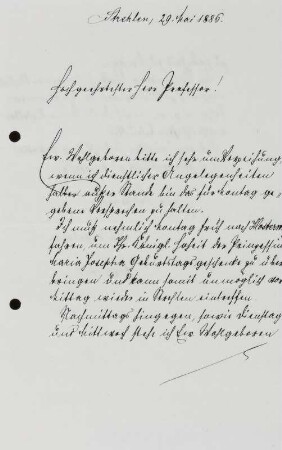 Strehlen, 29. Mai 1886.
Hochgeehrtester Herr Professor!
Ew. Wohlgeboren bitte ich sehr um Verzeihung,
wenn ich dienstlicher Angelegenheiten
halber außer Stande bin das für Montag ge-
gebene Versprechen zu halten.
Ich muß nehmlich Montag früh nach
fahren um Ihr. Königl. Hoheit der Prinzessin
Maria Josepha Geburtstagsgeschenke zu über-
bringen und kann somit unmöglich vor
Mittag wieder in Strehlen eintreffen.
Nachmittags hingegen, sowie Dienstag
und Mittwoch stehe ich Ew. Wohlgeboren